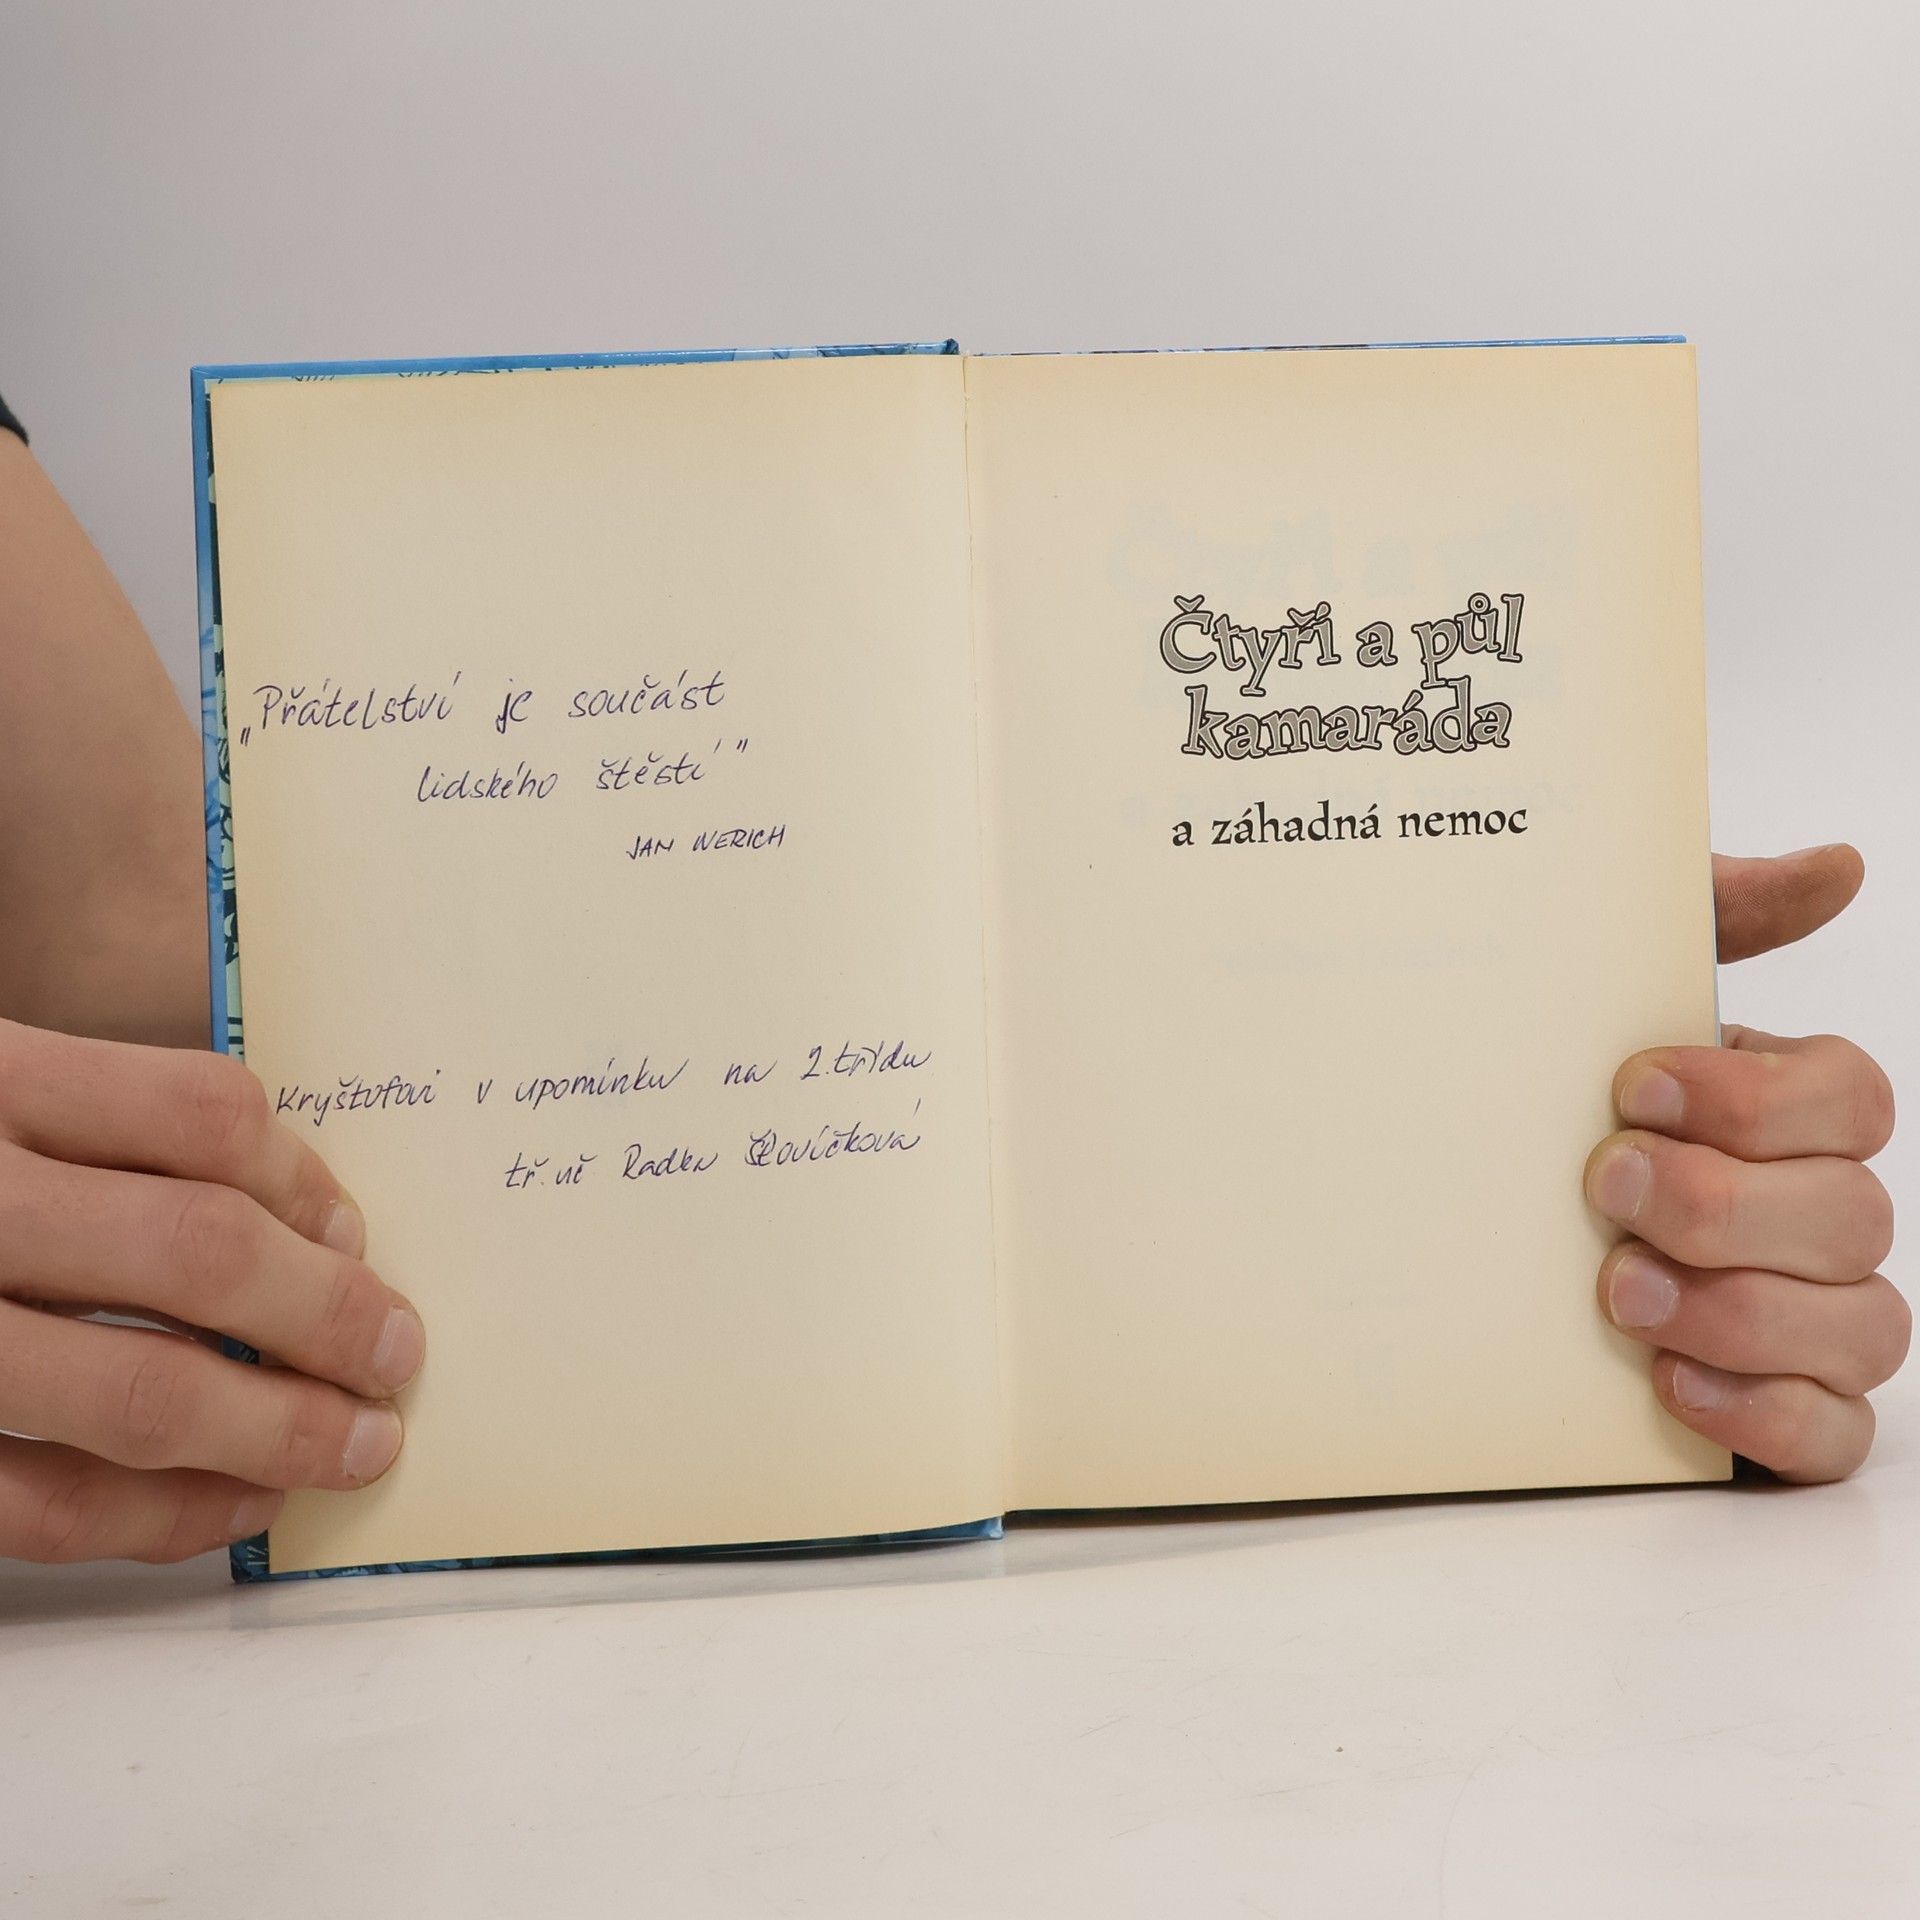 „Přátelství je součást
lidského štěstí"
JAN WERICH
Kryštofovi v upomínku na 2. třídu
tř. uč Radka
Čtyři a půl
kamaráda
a záhadná nemoc